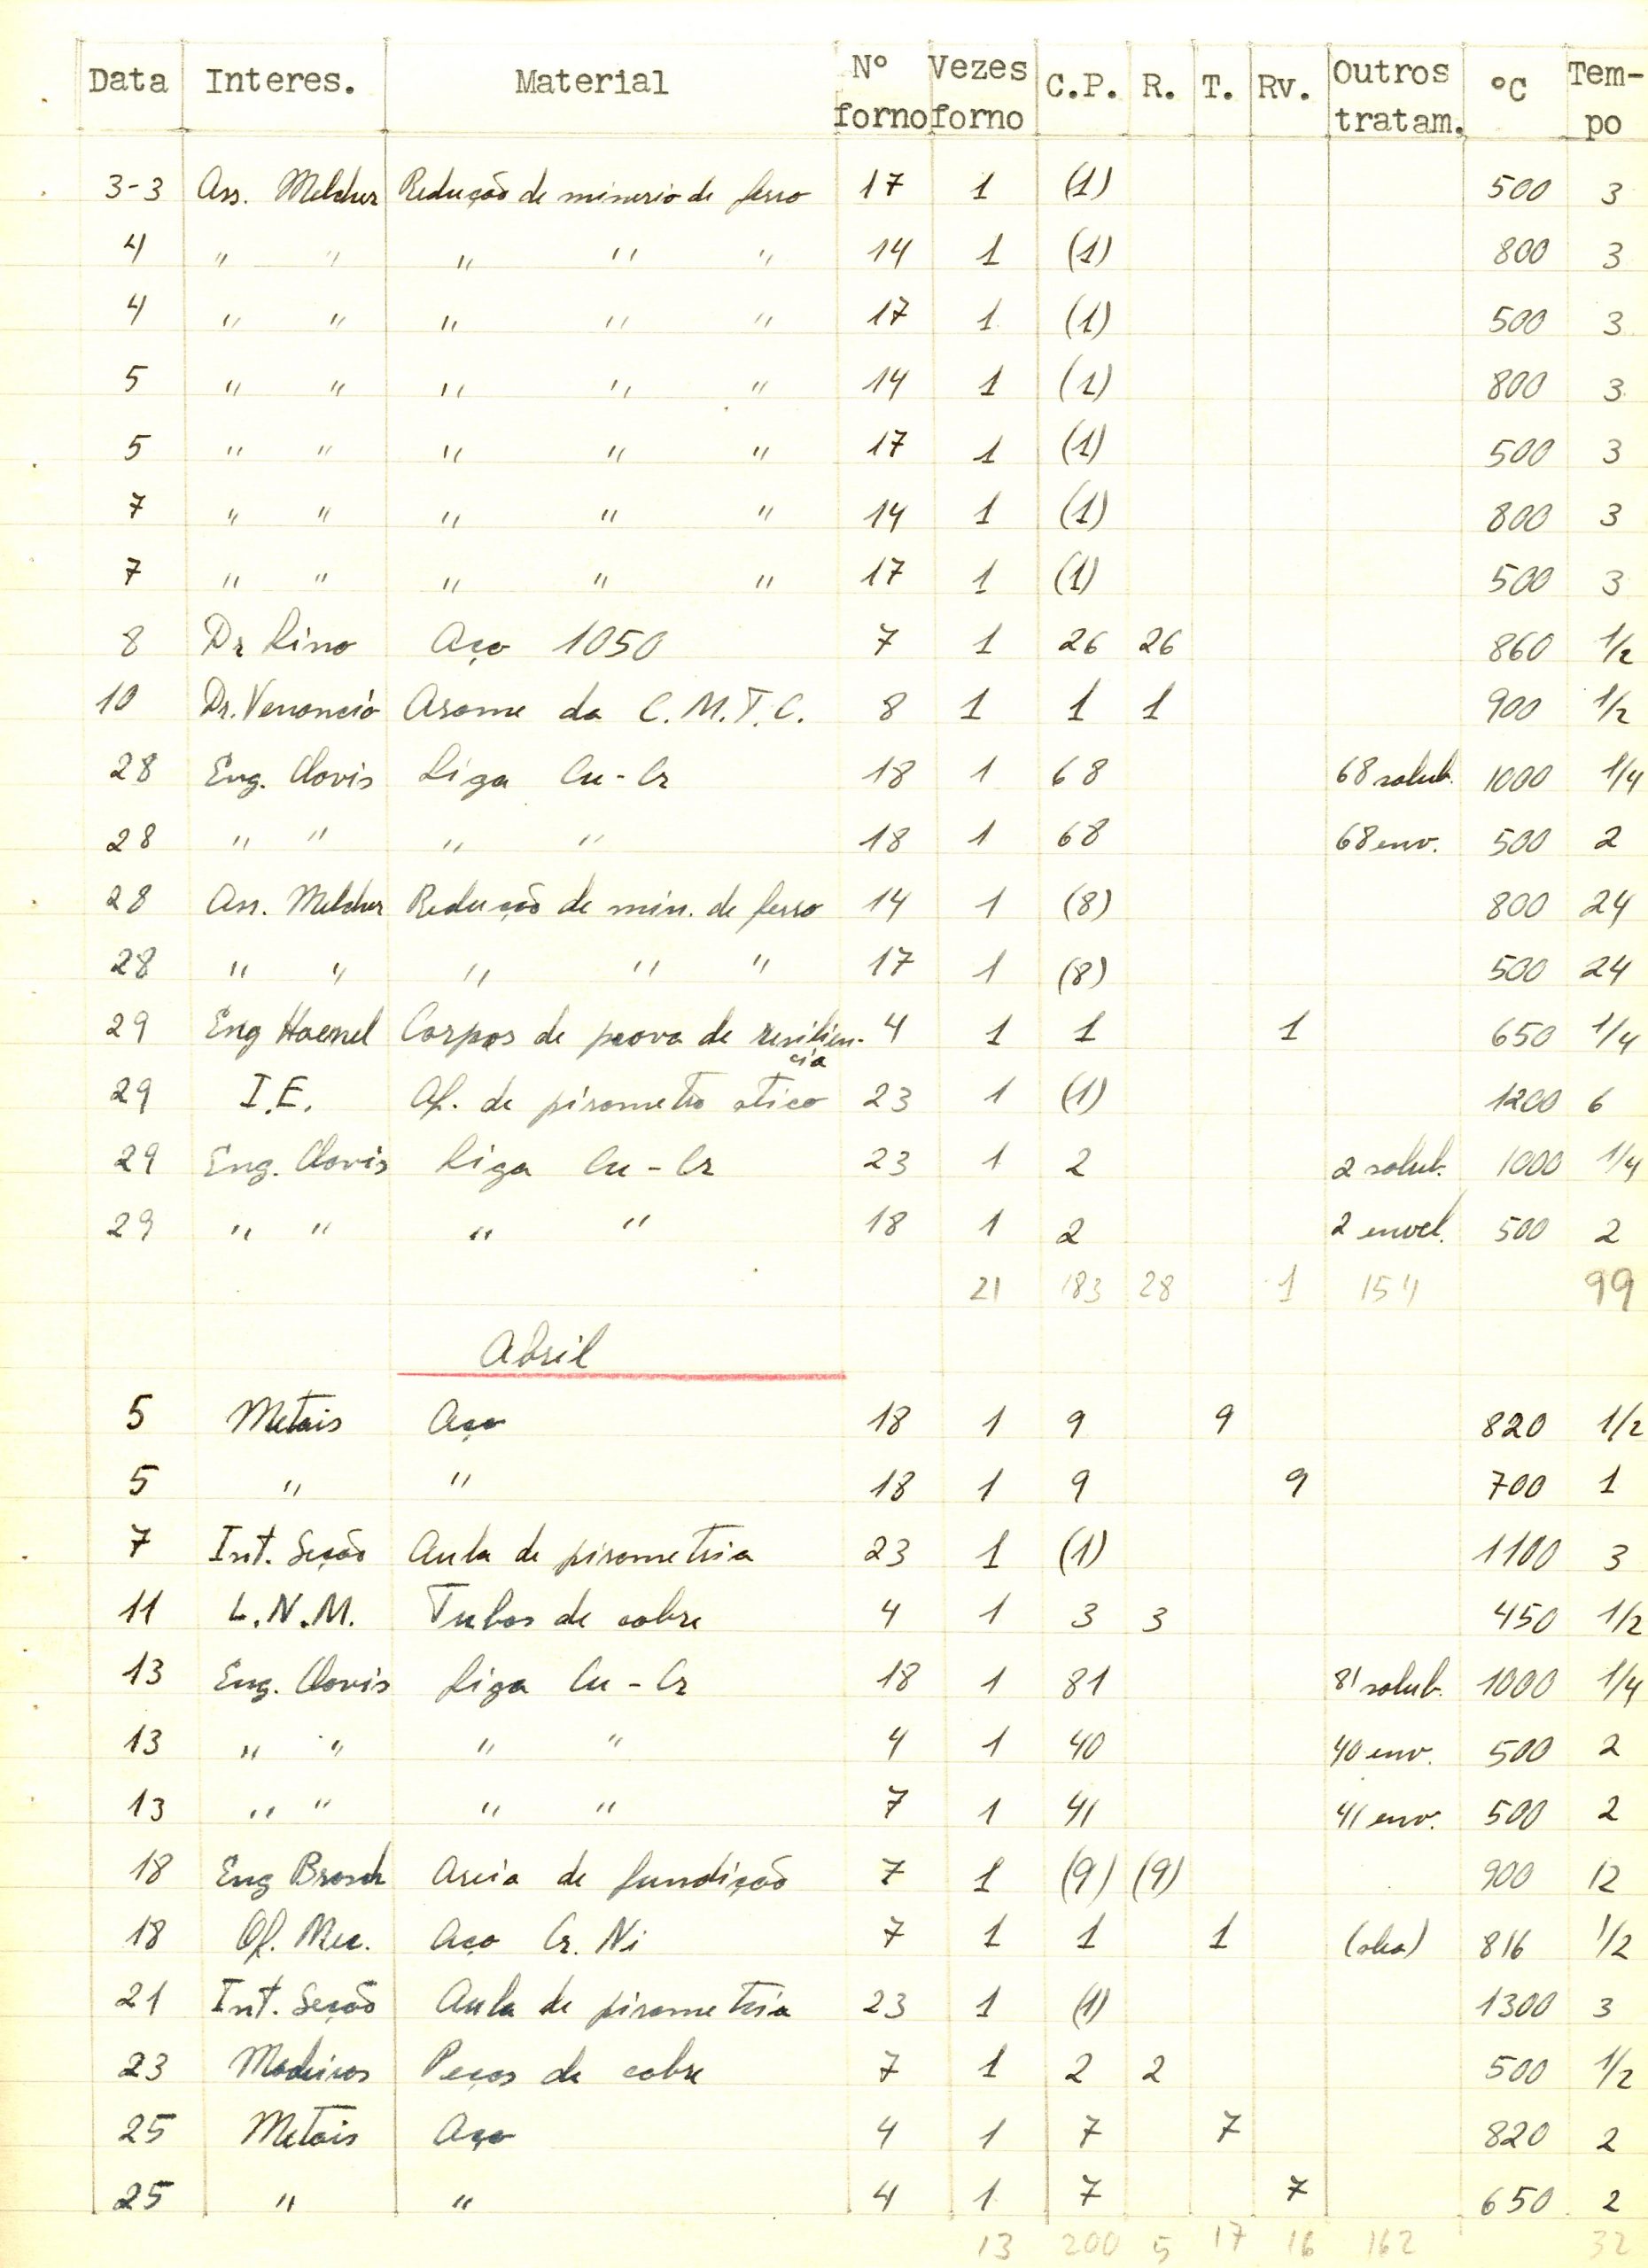 Data Interes. Material Nº forno Vezes forno C.P. R. T. Rv. Outros tratam. ºC Tem-po
3-3 Ass. Melcher Redução de minerio de ferro 17 1 (1) 500 3
4 " " " " " 14 1 (1) 800 3
4 " " " " " 17 1 (1) 500 3
5 " " " " " 14 1 (1) 800 3
5 " " " " " 17 1 (1) 500 3
7 " " " " " 14 1 (1) 800 3
7 " " " " " 17 1 (1) 500 3
8 Dr Lino Aço 1050 7 1 26 26 860 1/2
10 Dr. Venancio Arame da C.M.T.C. 8 1 1 1 900 1/2
28 Eng. Clovis Liga Cu-Cr 18 1 68 68 solub. 1000 1/4
28 " " " " 18 1 68 68 env. 500 2
28 Ass. Melcher Redução de min. de ferro 14 1 (8) 800 24
28 " " " " " 17 1 (8) 500 24
29 Eng Haenel Corpos de prova de resilien-cia 4 1 1 1 650 1/4
29 I.E. Af. de pirometro otico 23 1 (1) 1200 6
29 Eng. Clovis Liga Cu-Cr 23 1 2 2 solub. 1000 1/4
29 " " " " 18 1 2 2 envel. 500 2
21 183 28 1 154 99
Abril
5 Metais Aço 18 1 9 9 820 1/2
5 " " 18 1 9 9 700 1
7 Int. Seção Aula de pirometria 23 1 (1) 1100 3
11 L.N.M. Tubos de cobre 4 1 3 3 450 1/2
13 Eng. Clovis Liga Cu-Cr 18 1 81 81 solub. 1000 1/4
13 " " " " 4 1 40 40 env. 500 2
13 " " " " 7 1 41 41 env. 500 2
18 Eng Brosch Areia de fundição 7 1 (9) (9) 900 12
18 Of. Mec. Aço Cr. Ni 7 1 1 1 (oleo) 816 1/2
21 Int. Seção Aula de pirometria 23 1 (1) 1300 3
23 Medeiros Peças de cobre 7 1 2 2 500 1/2
25 Metais Aço 4 1 7 7 820 2
25 " " 4 1 7 7 650 2
13 200 5 17 16 162 32